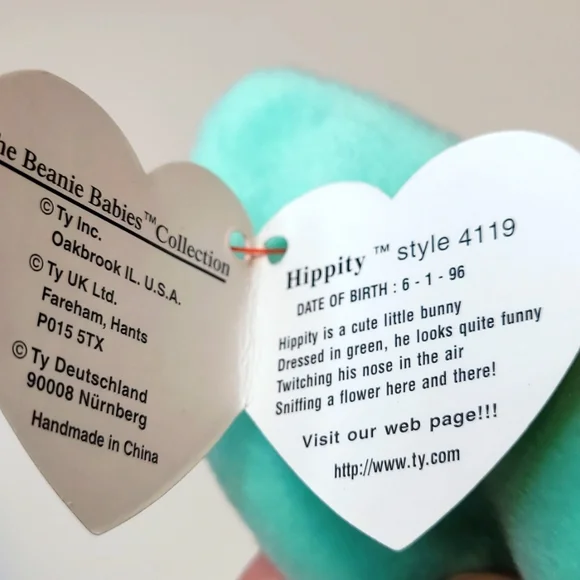 he Beanie Babies™ Collection
©Ty Inc.
Oakbrook IL. U.S.A.
©Ty UK Ltd.
Fareham, Hants
P015 5TX
©Ty Deutschland
90008 Nürnberg
Handmade in China
Hippity ™ style 4119
DATE OF BIRTH : 6 - 1 - 96
Hippity is a cute little bunny
Dressed in green, he looks quite funny
Twitching his nose in the air
Sniffing a flower here and there!
Visit our web page!!!
http://www.ty.com